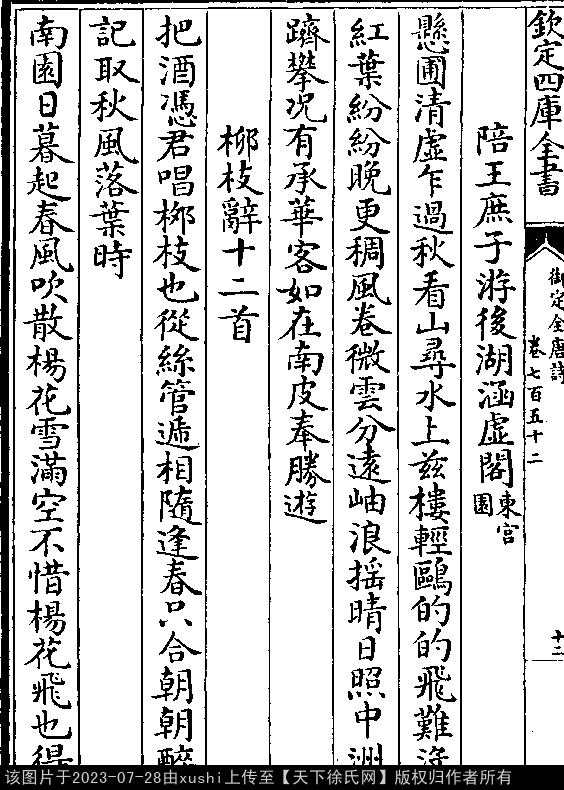 欽定四庫全書
御定全唐詩
卷七百五十二
十二
陪王庶子游後湖涵虛閣東宮園
懸圃清虛乍過秋看山尋水上兹樓輕鷗的的飛難
紅葉紛紛晚更稠風卷微雲分遠岫浪摇晴日照中洲
躋攀况有承華客如在南皮奉勝遊
柳枝辭十二首
把酒憑君唱柳枝也從絲管遞相隨逢春只合朝朝醉
記取秋風落葉時
南園日暮起春風吹散楊花雪滿空不惜楊花飛也得
该图片于2023-07-28由xushi上传至【天下徐氏网】版权归作者所有